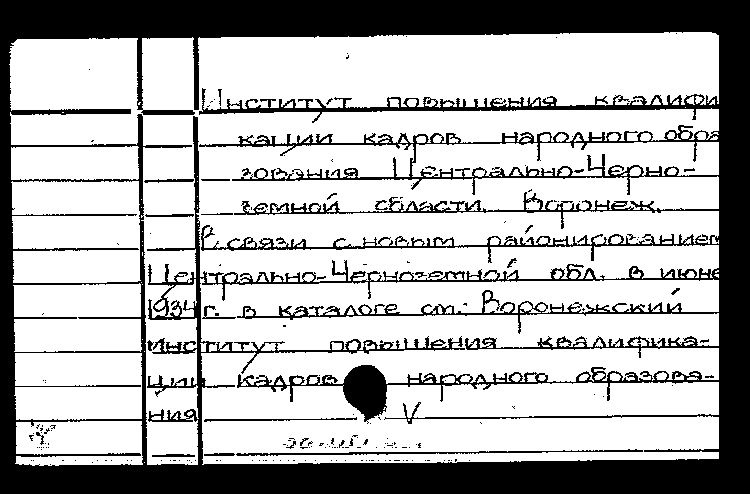 Институт повышения квалифи
кации кадров народного обра
зования Центрально-Черно-
земной области. Воронеж.
В связи с новым районированием
Центрально-Черноземной обл. в июне
1934 г. в каталоге см.: Воронежский
институт повышения квалифика-
ции кадров народного образова-
ния V